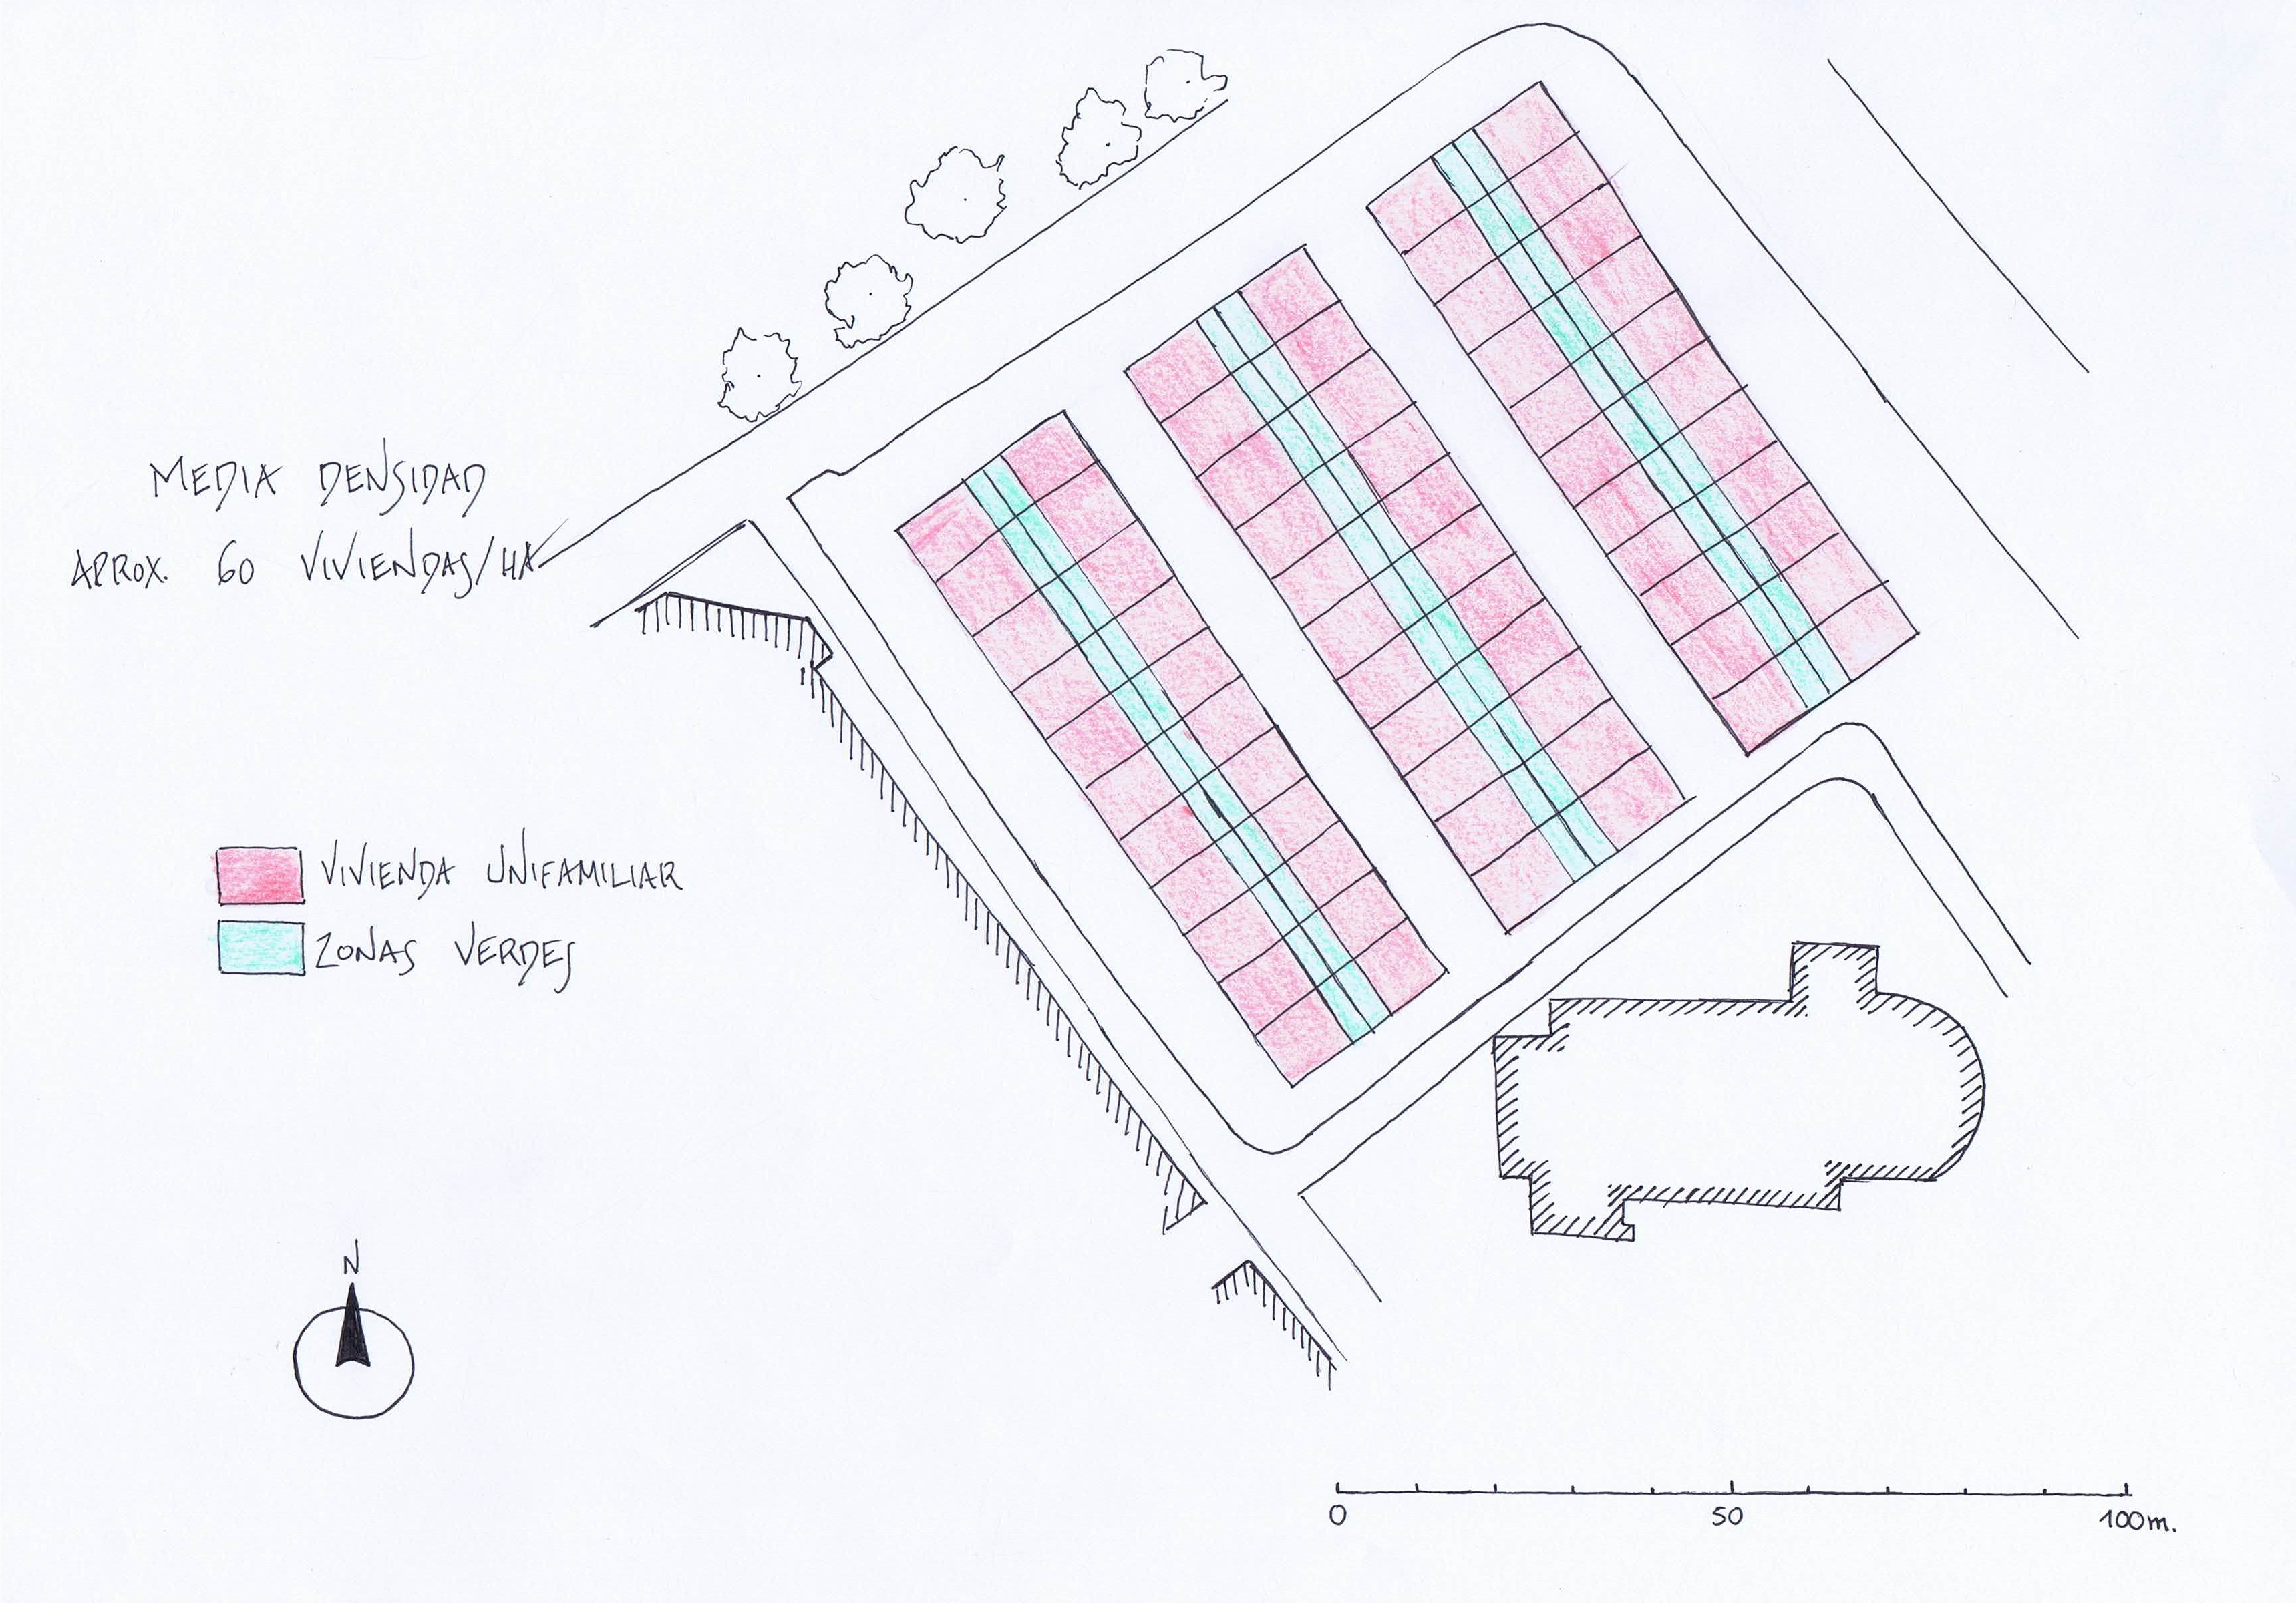 MEDIA DENSIDAD
APROX. 60 VIVIENDAS/HA
VIVIENDA UNIFAMILIAR
ZONAS VERDES
N
0 50 100m.